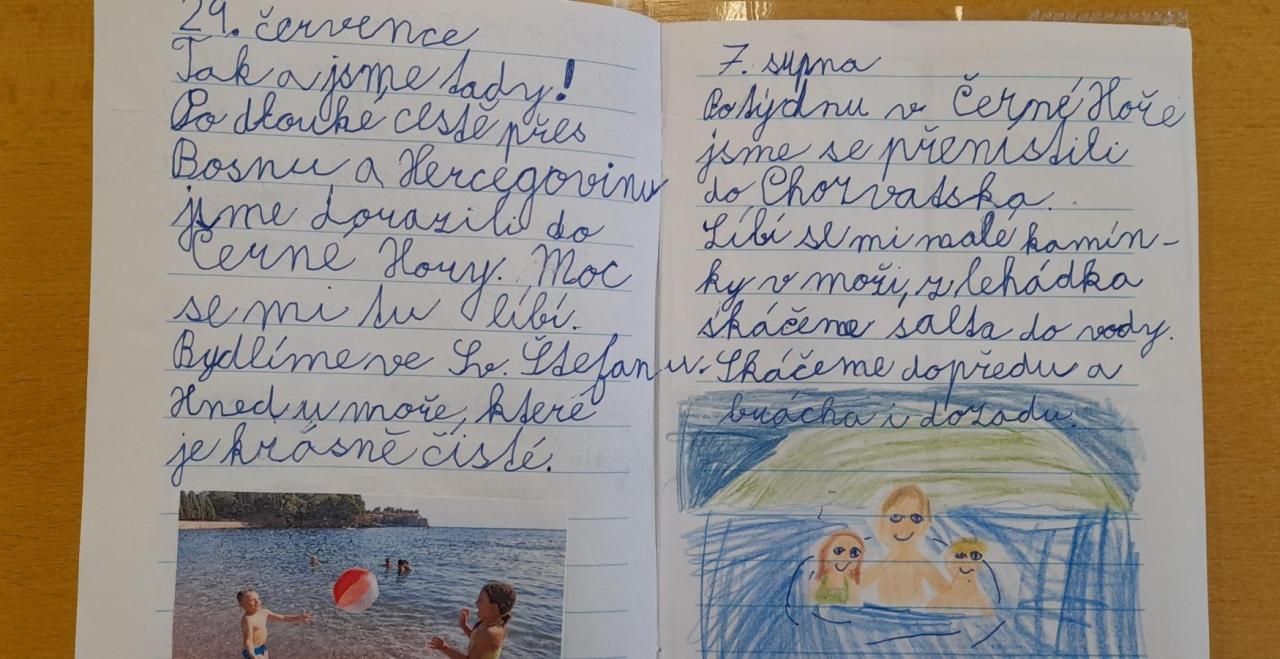 29. července
Tak a jsme tady!
Po dlouhé cestě přes
Bosnu a Hercegovinu
jsme dorazili do
Černé Hory. Moc
se mi tu líbí.
Bydlíme ve Sv. Štefanu.
Hned u moře, které
je krásně čisté.
7. srpna
Po týdnu v Černé Hoře
jsme se přemístili
do Chorvatska.
Líbí se mi malé kamín-
ky v moři, z lehádka
skáčeme salta do vody.
Skáčeme dopředu a
brácha i dozadu.